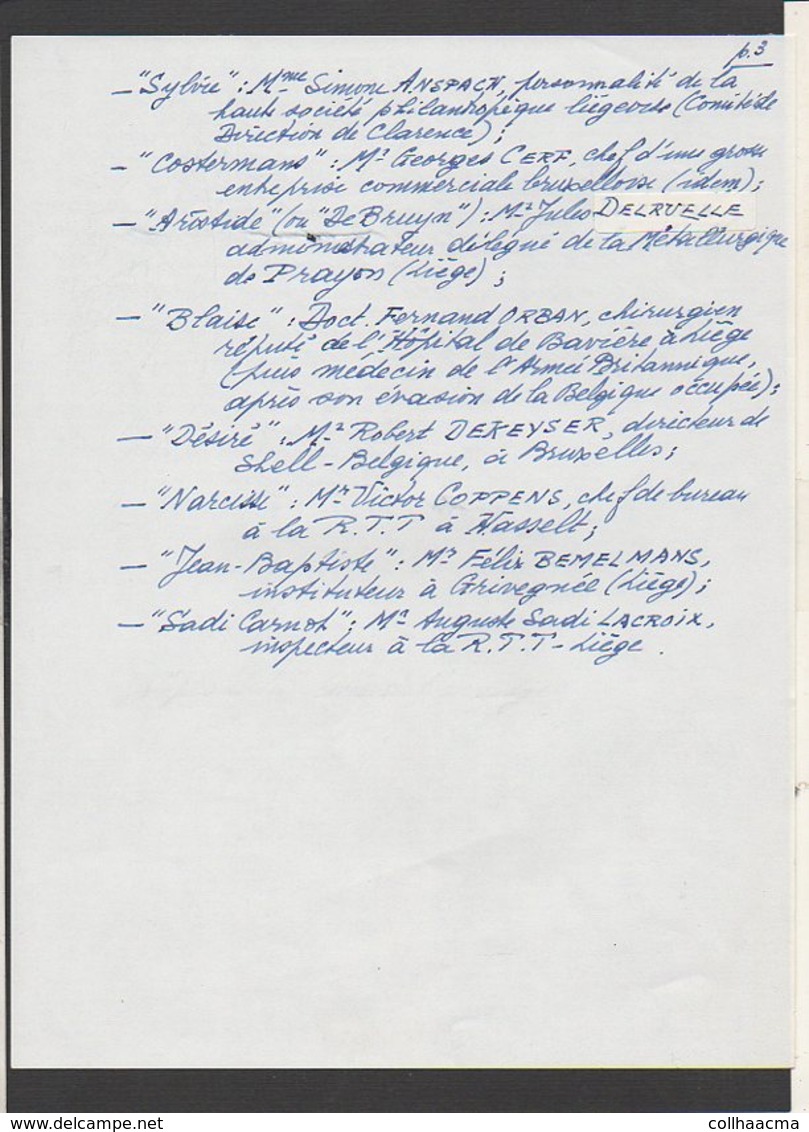 p.3
— "Sylvie" : Mme Simone ANSPACH, personnalité de la
haute société philantropique liégeoise (Comité de
Direction de Clarence) ;
— "Costermans" : Mr Georges CERF, chef d'une grosse
entreprise commerciale bruxelloise (idem) ;
— "Aristide" (ou "De Bruyn") : Mr Jules DELRUELLE
administrateur délégué de la Métallurgique
de Prayon (Liège) ;
— "Blaise" : Doct. Fernand ORBAN, chirurgien
réputé de l'Hôpital de Bavière à Liège
(puis médecin de l'Armée Britannique,
après son évasion de la Belgique occupée) ;
— "Désiré" : Mr Robert DEKEYSER, directeur de
Shell-Belgique, à Bruxelles ;
— "Narcisse" : Mr Victor COPPENS, chef de bureau
à la R.T.T à Hasselt ;
— "Jean-Baptiste" : Mr Félix BEMELMANS,
instituteur à Grivegnée (Liège) ;
— "Sadi Carnot" : Mr Auguste Sadi LACROIX,
inspecteur à la R.T.T - Liège.
delcampe.net
collhaacma